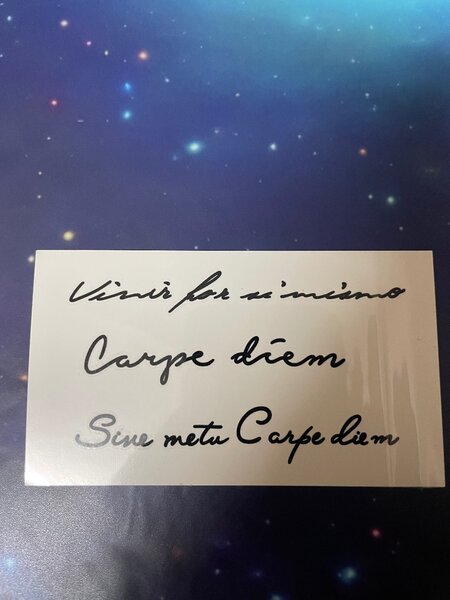 Vivir por si mismo
Carpe diem
Sive metu Carpe diem